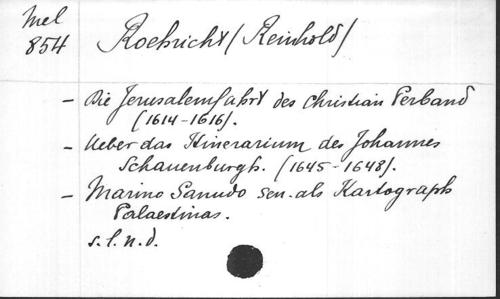 Mel
854
Roehricht (Reinhold)
- Die Jerusalemfahrt des Christian Perband
(1614-1616).
- Ueber das Itinerarium des Johannes
Schauenburgh. (1645-1648).
- Marino Sanudo sen. als Kartograph
Palaestinas.
s.l.n.d.